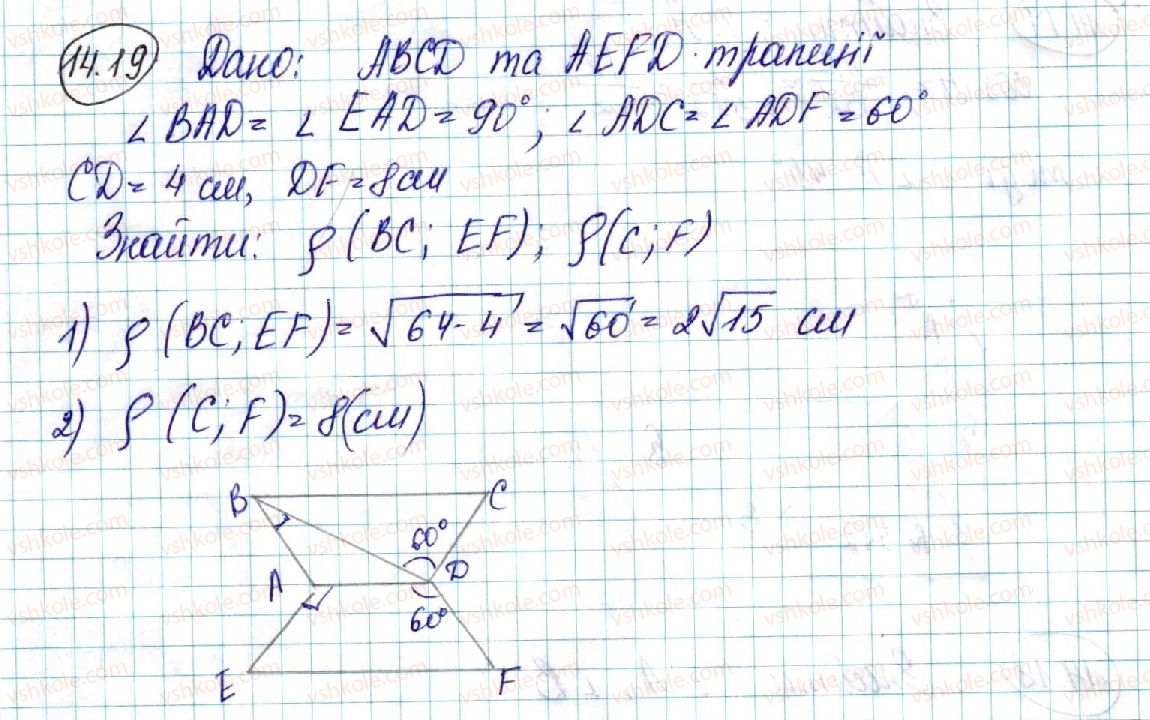 14.19 Дано: ABCD та AEFD трапеції
∠ BAD = ∠ EAD = 90°; ∠ ADC = ∠ ADF = 60°
CD = 4 см, DF = 8 см
Знайти: ρ (BC; EF); ρ(C; F)
1) ρ (BC; EF) = √64-4 = √60 = 2√15 см
2) ρ (C; F) = 8(см)
B C
60°
A D
60°
E F